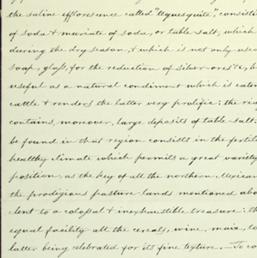 the saline efflorescence called "Tequesquite", consisti
of soda & muriate of soda, or table salt, which
during the dry season, & which is not only used
soap, glass, for the reduction of silver ores &c, b
useful as a natural condiment which is eaten
cattle & renders the latter very prolific; the re
contains, moreover, large deposits of table salt.
be found in that region consists in the fertili
healthy climate which permits a great variety
position, as the key of all the northern Mexican
the prodigious pasture lands mentioned abo
lent to a colossal & inexhaustible treasure: th
equal facility all the cereals, wine, maiz, to
latter being celebrated for its fine texture. To co